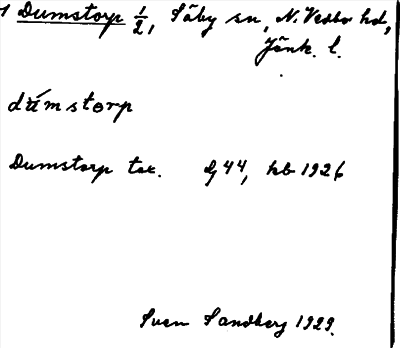 1 Dumstorp 1/2, Säby sn, N. Vedbo hd,
Jönk. l.
dúmstorp
Dumstorp tax. Dj 44, hb 1926
Sven Sandberg 1929.